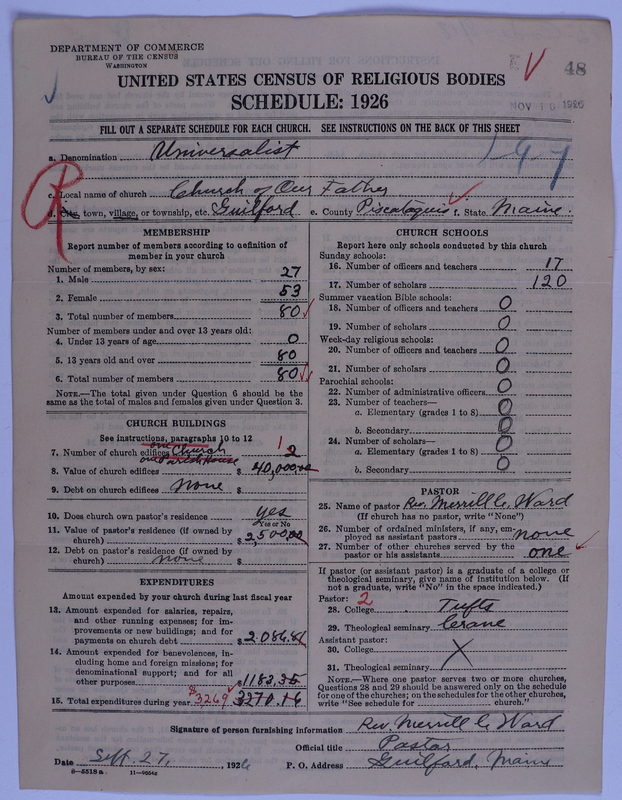 DEPARTMENT OF COMMERCE
BUREAU OF THE CENSUS
WASHINGTON
48
NOV 10 1926
UNITED STATES CENSUS OF RELIGIOUS BODIES
SCHEDULE: 1926
FILL OUT A SEPARATE SCHEDULE FOR EACH CHURCH. SEE INSTRUCTIONS ON THE BACK OF THIS SHEET
a. Denomination Universalist
c. Local name of church Church of Our Father
d. City, town, village, or township, etc. Guilford e. County Piscataquis f. State Maine.
MEMBERSHIP
Report number of members according to definition of
member in your church
Number of members, by sex:
1. Male 27
2. Female 53
3. Total number of members 80
Number of members under and over 13 years old:
4. Under 13 years of age 0
5. 13 years old and over 80
6. Total number of members 80
NOTE.—The total given under Question 6 should be
same as the total of males and females given under Question 3.
CHURCH BUILDINGS
See instructions, paragraphs 10 to 12
one Church
7. Number of church edifices 1 2
one Parish House
8. Value of church edifices $ 40,000.00
9. Debt on church edifices none $
10. Does church own pastor's residence yes
Yes or No
11. Value of pastor's residence (if owned by
church) $ 2,500.00
12. Debt on pastor's residence (if owned by
church) none $
EXPENDITURES
Amount expended by your church during last fiscal year
13. Amount expended for salaries, repairs,
and other running expenses; for im-
provements or new buildings; and for
payments on church debt $ 2,086.81
14. Amount expended for benevolences, in-
cluding home and foreign missions; for
denominational support; and for all
other purposes $ 1182.35
15. Total expenditures during year $3269 3270.16
CHURCH SCHOOLS
Report here only schools conducted by this church
Sunday schools:
16. Number of officers and teachers 17
17. Number of scholars 120
Summer vacation Bible schools:
18. Number of officers and teachers 0
19. Number of scholars 0
Week-day religious schools:
20. Number of officers and teachers 0
21. Number of scholars 0
Parochial schools:
22. Number of administrative officers 0
23. Number of teachers—
a. Elementary (grades 1 to 8) 0
b. Secondary 0
24. Number of scholars—
a. Elementary (grades 1 to 8) 0
b. Secondary 0
PASTOR
25. Name of pastor Rev. Merrill C. Ward
(If church has no pastor, write "None")
26. Number of ordained ministers, if any, em-
ployed as assistant pastors none
27. Number of other churches served by the
pastor or his assistants one
If pastor (or assistant pastor) is a graduate of a college or
theological seminary, give name of institution below. (If
not a graduate, write "No" in the space indicated.)
Pastor: 2
28. College Tufts
29. Theological seminary Crane
Assistant pastor:
30. College X
31. Theological seminary
NOTE.—Where one pastor serves two or more churches,
Questions 28 and 29 should be answered only on the schedule
for one of the churches; on the schedules for the other churches,
write "See schedule for church."
Signature of person furnishing information Rev. Merrill C. Ward
Official title Pastor
Date Sept. 27, 1926 P. O. Address Guilford, Maine
8—5518a 11—9264c